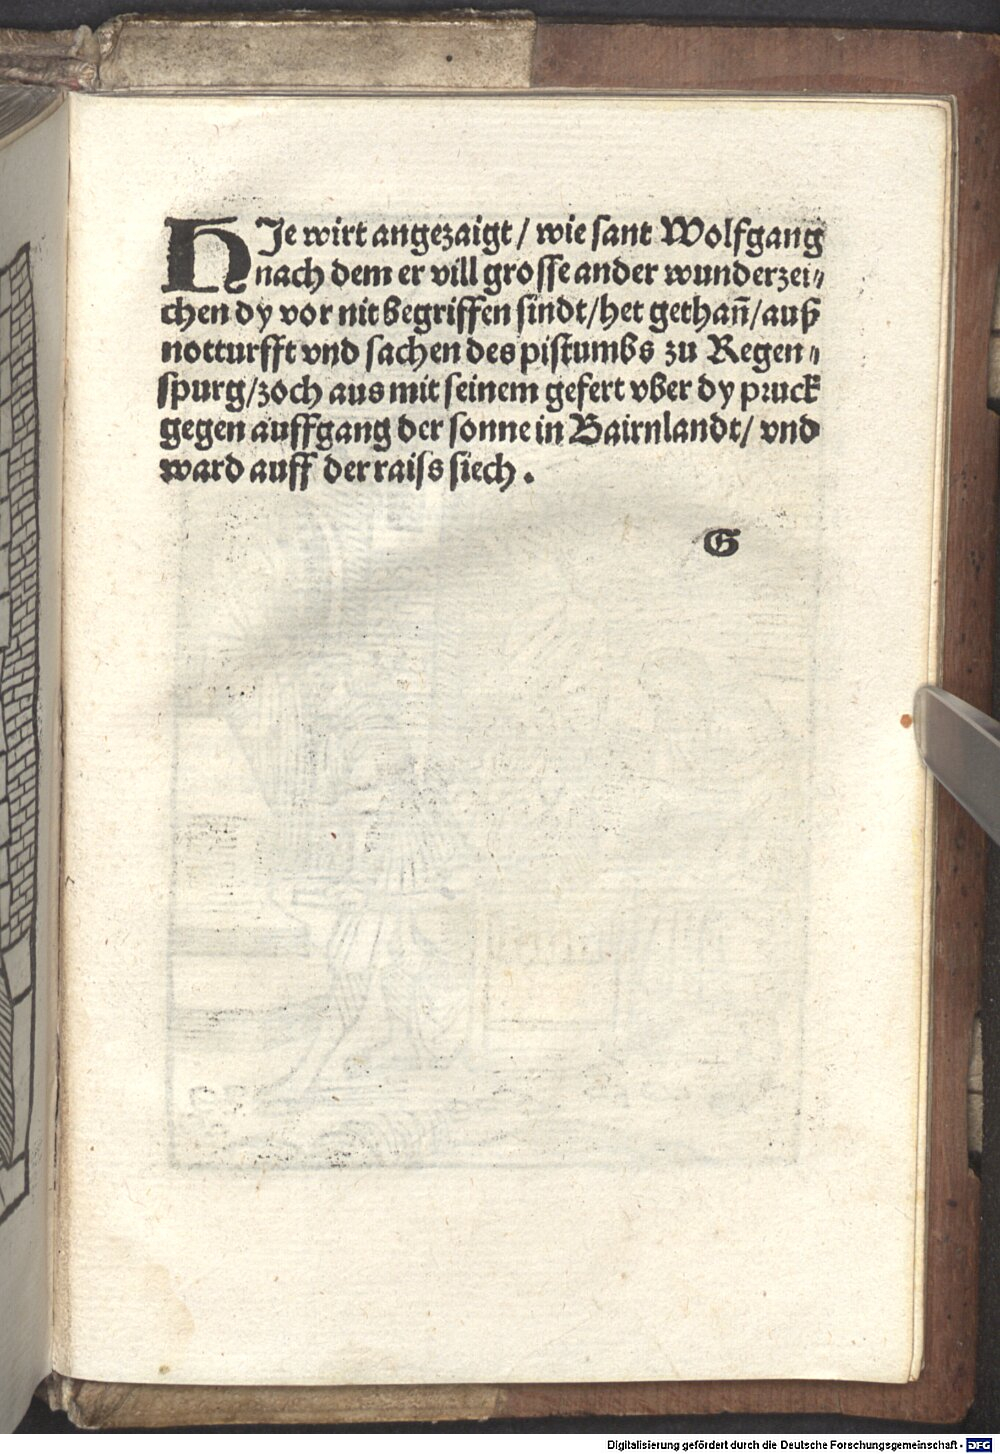 HJe wirt angezaigt / wie sant Wolfgang
nach dem er vill grosse ander wunderzei⸗
chen dy vor nit begriffen sindt/het gethan̄/auß
notturfft vnd sachen des pistumbs zu Regen⸗
spurg/zoch aus mit seinem gefert vber dy pruck
gegen auffgang der sonne in Bairnlandt/ vnd
ward auff der raiss siech .
G
Digitalisierung gefördert durch die Deutsche Forschungsgemeinschaft - DFG